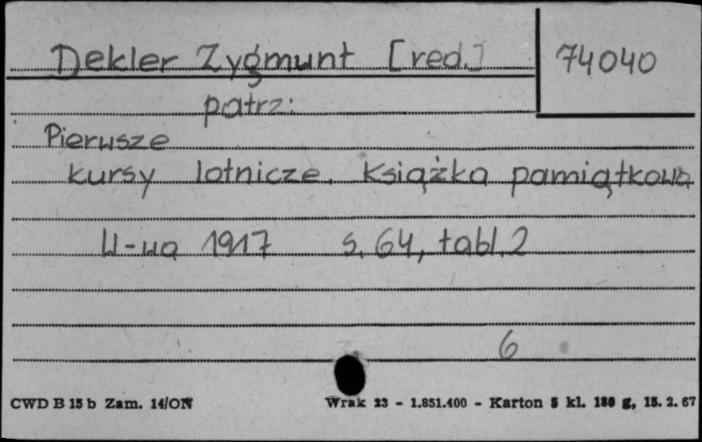 Dekler Zygmunt [red.]
74040
patrz:
Pierwsze
kursy lotnicze. Książka pamiątkowa
W-wa 1917 s. 64, tabl. 2
6
CWD B 15 b Zam. 14/ON
Wrak 23 - 1.851.400 - Karton 5 kl. 180 g, 15. 2. 67